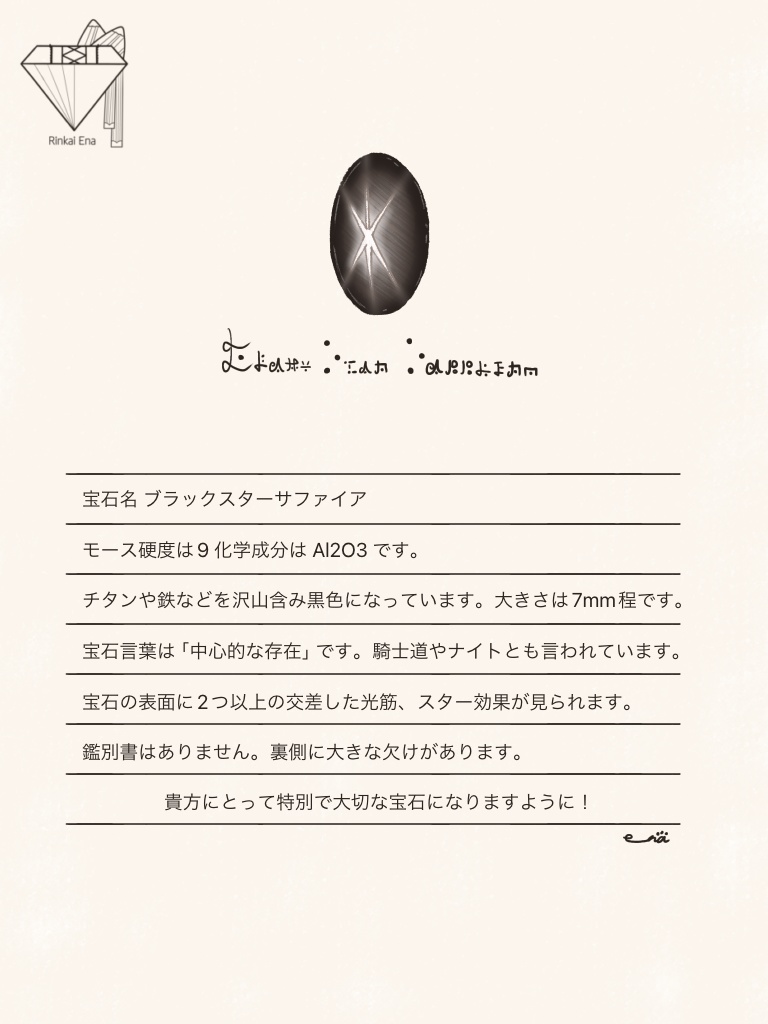 Rinkai Ena
宝石名 ブラックスターサファイア
モース硬度は9 化学成分は Al2O3 です。
チタンや鉄などを沢山含み黒色になっています。大きさは7mm程です。
宝石言葉は「中心的な存在」です。騎士道やナイトとも言われています。
宝石の表面に2つ以上の交差した光筋、スター効果が見られます。
鑑別書はありません。裏側に大きな欠けがあります。
貴方にとって特別で大切な宝石になりますように！
ena